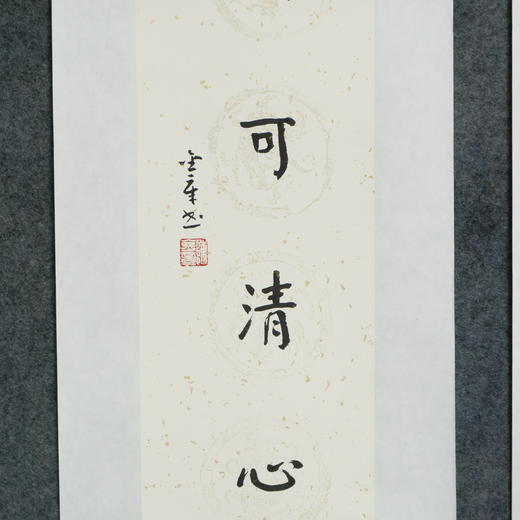 可清心
金章书